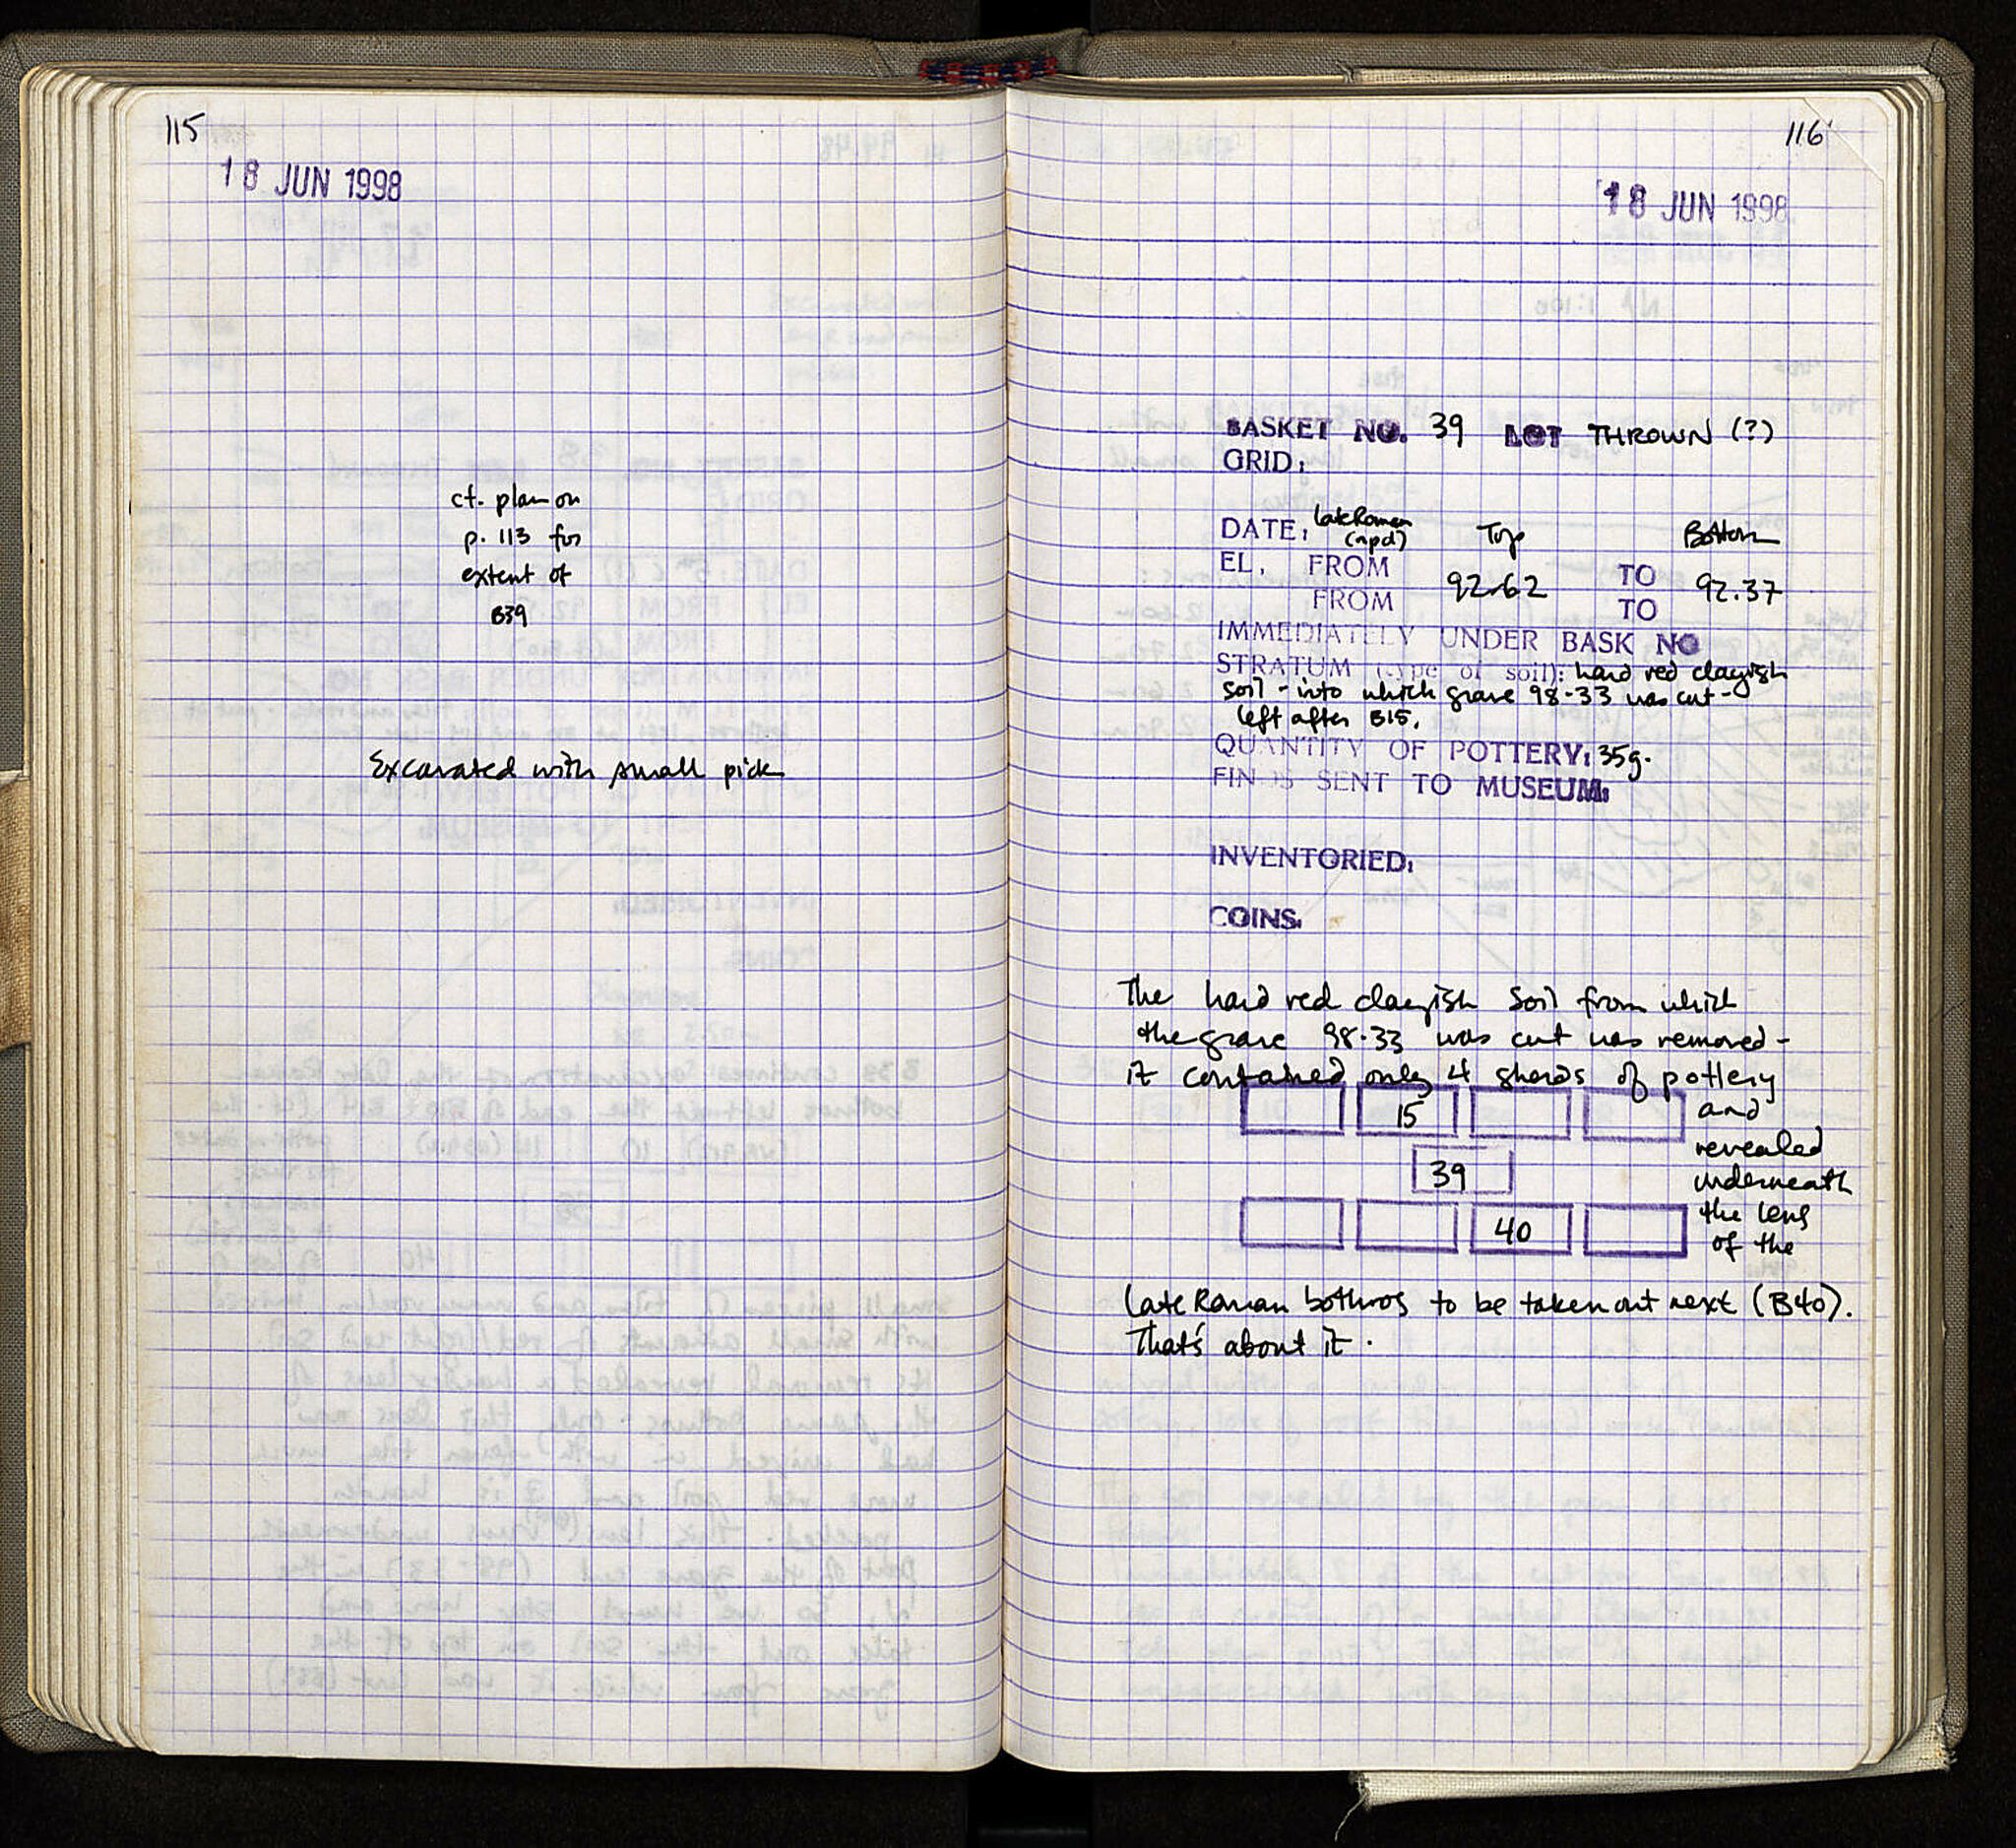 115
18 JUN 1998
cf. plan on
p. 113 for
extent of
B39
Excavated with small pick
116
18 JUN 1998
BASKET NO. 39 LOT THROWN (?)
GRID:
DATE: late Roman
(npd)
Top Bottom
EL. FROM 92.62 TO 92.37
FROM TO
IMMEDIATELY UNDER BASK NO
STRATUM (type of soil): hard red clayish
soil - into which grave 98-33 was cut -
left after B15.
QUANTITY OF POTTERY: 35g.
FINDS SENT TO MUSEUM:
INVENTORIED:
COINS:
The hard red clayish soil from which
the grave 98-33 was cut was removed -
it contained only 4 sherds of pottery
and
15
revealed
39
underneath
the lens
40
of the
late Roman bothros to be taken out next (B40).
That's about it.